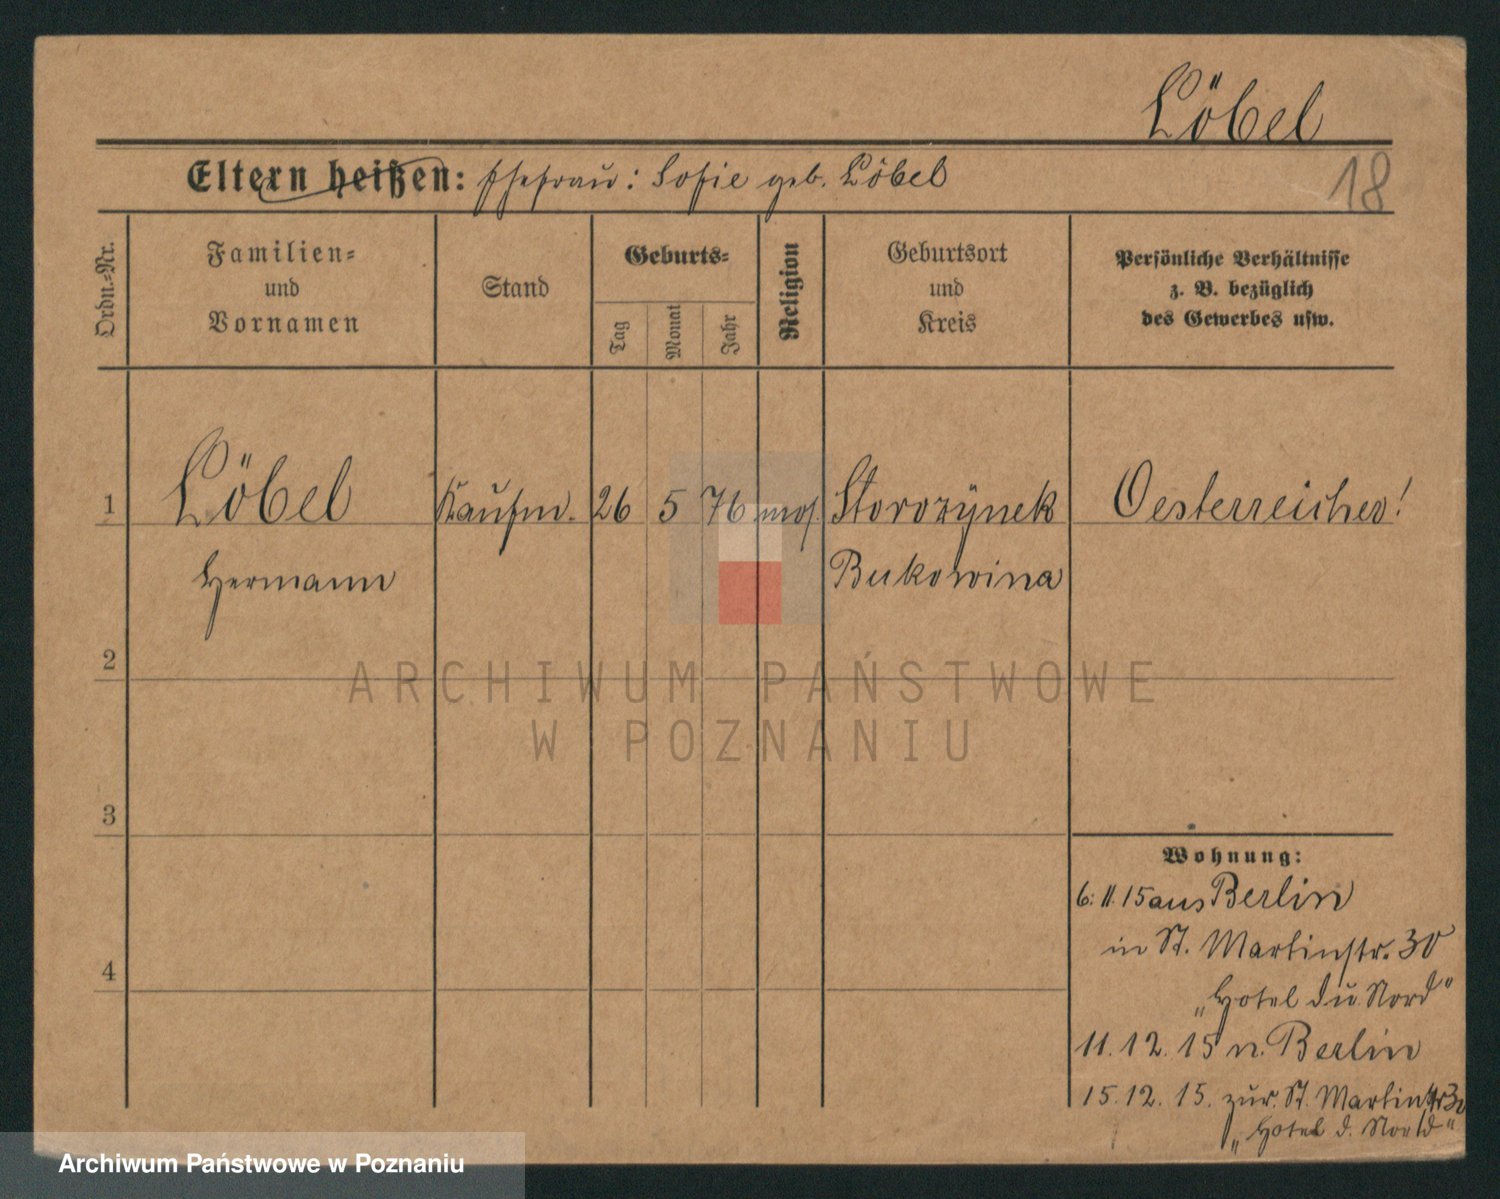 Löbel
Eltern heißen: Ehefrau: Sofie geb. Löbel
18
Ordn.-Nr.
Familien-
und
Vornamen
Stand
Geburts-
Tag
Monat
Jahr
Religion
Geburtsort
und
Kreis
Persönliche Verhältnisse
z. B. bezüglich
des Gewerbes usw.
1 Löbel Kaufm. 26 5 76 mos. Storozynek Oesterreicher!
Hermann Bukowina
2
ARCHIWUM PAŃSTWOWE
W POZNANIU
3
Wohnung:
6. 11. 15 aus Berlin
in St. Martinstr. 30
4
„Hotel du Nord"
11. 12. 15 n. Berlin
15. 12. 15. zur. St. Martinstr 30
„Hotel d. Nord"
Archiwum Państwowe w Poznaniu